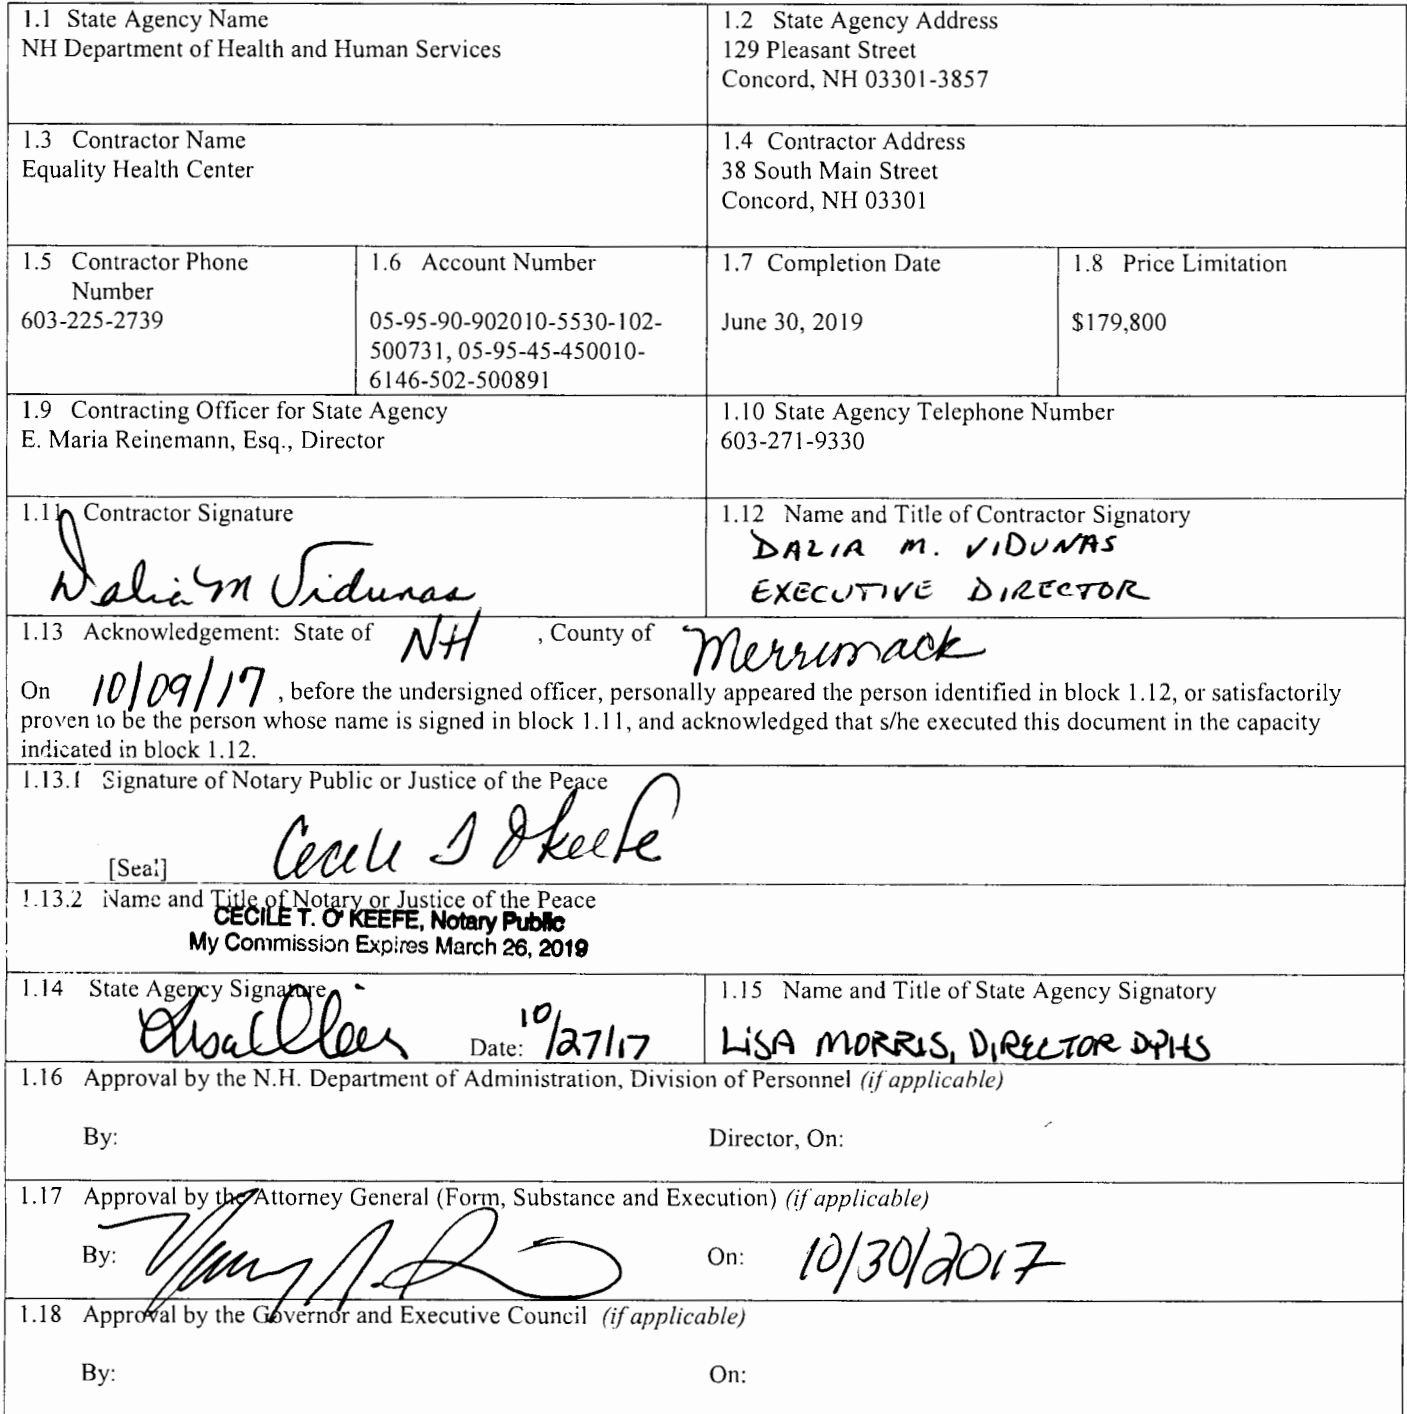 1.1 State Agency Name
NH Department of Health and Human Services
1.2 State Agency Address
129 Pleasant Street
Concord, NH 03301-3857
1.3 Contractor Name
Equality Health Center
1.4 Contractor Address
38 South Main Street
Concord, NH 03301
1.5 Contractor Phone
Number
603-225-2739
1.6 Account Number
05-95-90-902010-5530-102-
500731, 05-95-45-450010-
6146-502-500891
1.7 Completion Date
June 30, 2019
1.8 Price Limitation
$179,800
1.9 Contracting Officer for State Agency
E. Maria Reinemann, Esq., Director
1.10 State Agency Telephone Number
603-271-9330
1.11 Contractor Signature
Dalia M Vidunas
1.12 Name and Title of Contractor Signatory
DALIA M. VIDUNAS
EXECUTIVE DIRECTOR
1.13 Acknowledgement: State of NH , County of Merrimack
On 10/09/17 , before the undersigned officer, personally appeared the person identified in block 1.12, or satisfactorily
proven to be the person whose name is signed in block 1.11, and acknowledged that s/he executed this document in the capacity
indicated in block 1.12.
1.13.1 Signature of Notary Public or Justice of the Peace
Cecile T O'Keefe
[Seal]
1.13.2 Name and Title of Notary or Justice of the Peace
CECILE T. O' KEEFE, Notary Public
My Commission Expires March 26, 2019
1.14 State Agency Signature
Date: 10/27/17
1.15 Name and Title of State Agency Signatory
LISA MORRIS, DIRECTOR DPHS
1.16 Approval by the N.H. Department of Administration, Division of Personnel (if applicable)
By: Director, On:
1.17 Approval by the Attorney General (Form, Substance and Execution) (if applicable)
By: On: 10/30/2017
1.18 Approval by the Governor and Executive Council (if applicable)
By: On: